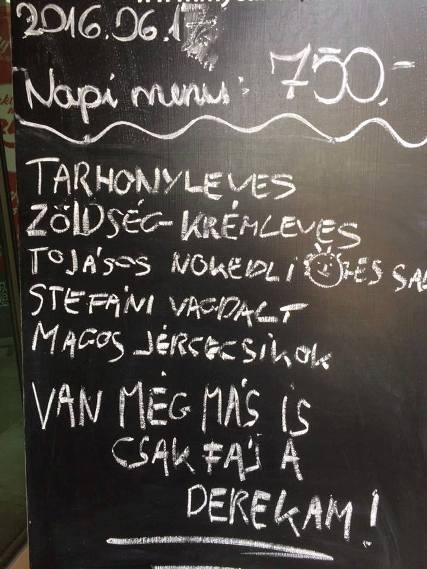 2016.06.17
Napi menu: 750.-
TARHONYLEVES
ZÖLDSÉG-KRÉMLEVES
TOJÁSOS NOKEDLI FES SAL
STEFÁNI VAGDALT
MAGOS JÉRCECSÍKOK
VAN MÉG MÁS IS
CSAK FÁJ A
DEREKAM!